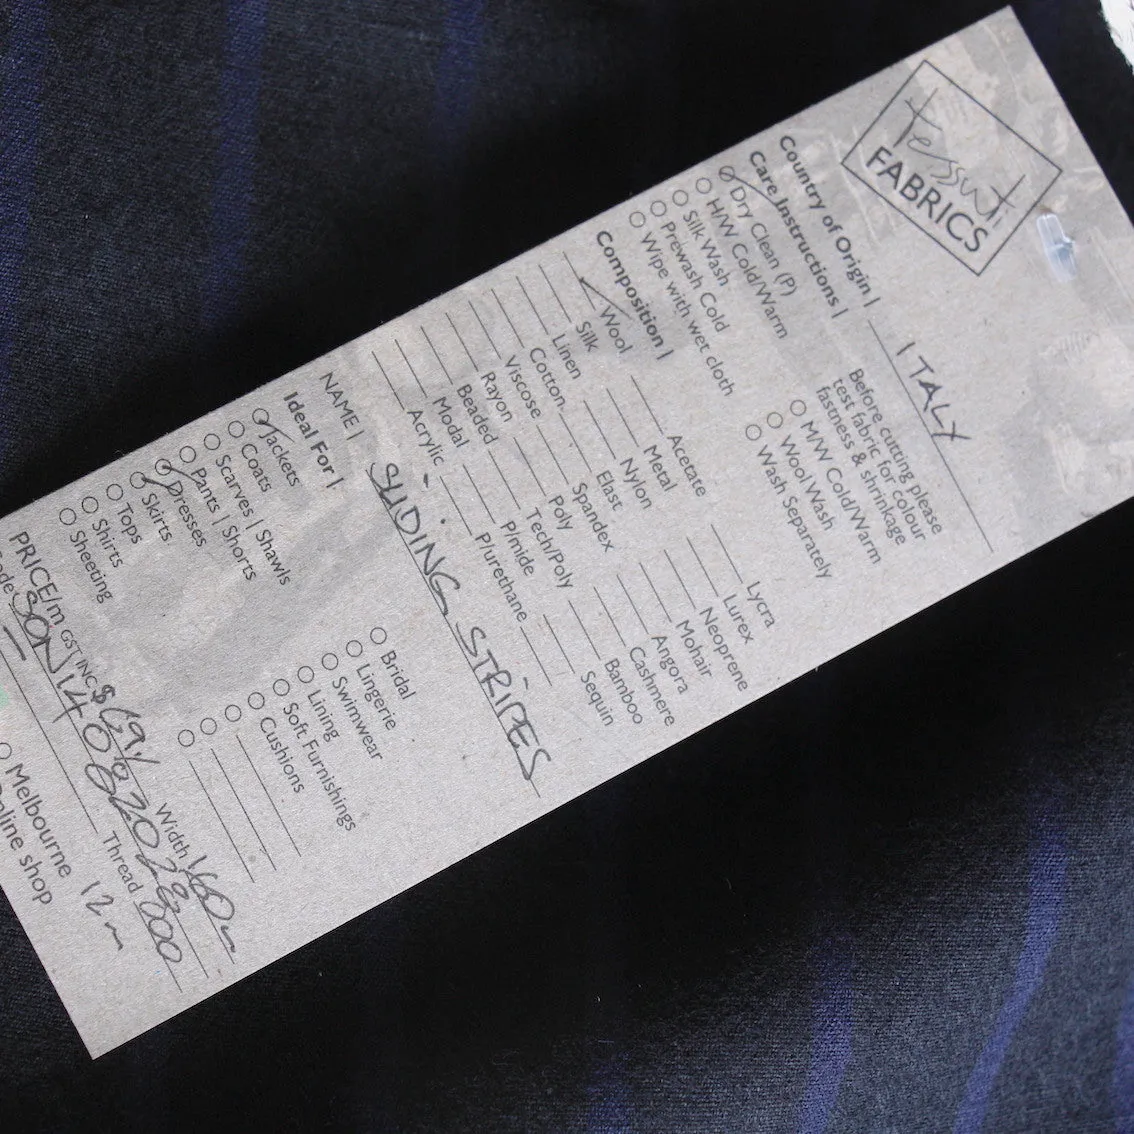 tessuti
FABRICS
Country of Origin | ITALY
Care Instructions |
Dry Clean (P)
H/W Cold/Warm
Silk Wash
Prewash Cold
Wipe with wet cloth
Before cutting please
test fabric for colour
fastness & shrinkage
M/W Cold/Warm
Wool Wash
Wash Separately
Composition |
Wool
Silk
Linen
Cotton
Viscose
Rayon
Beaded
Modal
Acrylic
Acetate
Metal
Nylon
Elast
Spandex
Poly
Tech/Poly
P/mide
P/urethane
Lycra
Lurex
Neoprene
Mohair
Angora
Cashmere
Bamboo
Sequin
NAME | SLIDING STRIPES
Ideal For |
Jackets
Coats
Scarves | Shawls
Pants | Shorts
Dresses
Skirts
Tops
Shirts
Sheeting
Bridal
Lingerie
Swimwear
Lining
Soft Furnishings
Cushions
PRICE/m GST INC $69 Width 160m
Thread 800
Melbourne 12m
nline shop